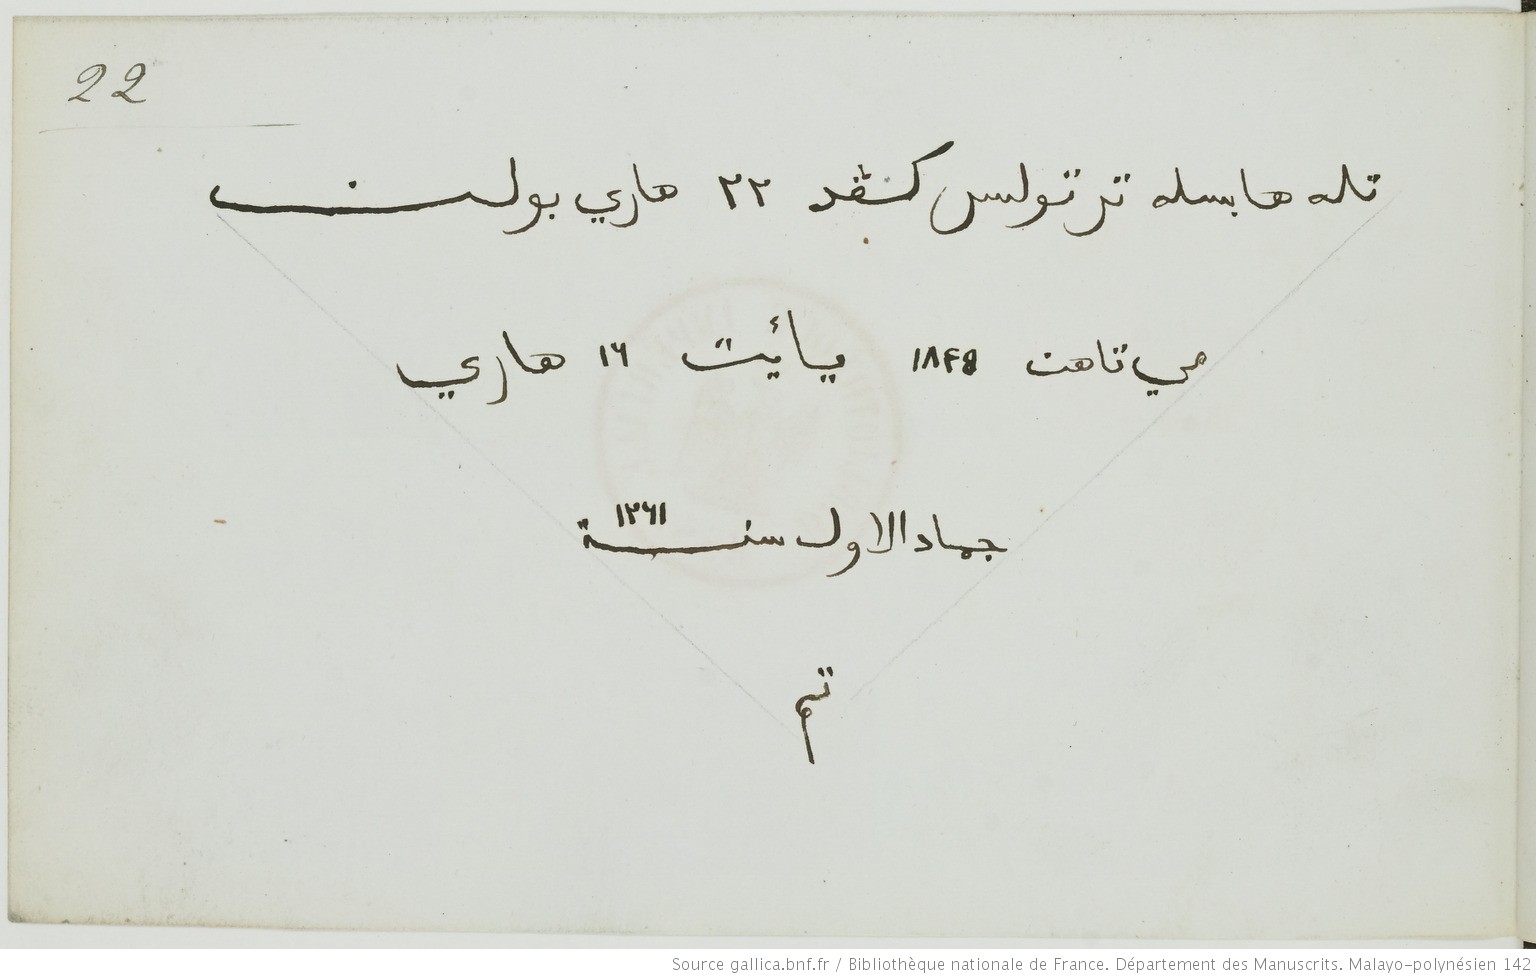 22
تله هابسله ترتولس كڤد ٢٢ هاري بولن
مي تاهن ١٨٤٥ يائيت ١٦ هاري
جماد الاول سنة ١٢٦١
تم
Source gallica.bnf.fr / Bibliothèque nationale de France. Département des Manuscrits. Malayo-polynésien 142